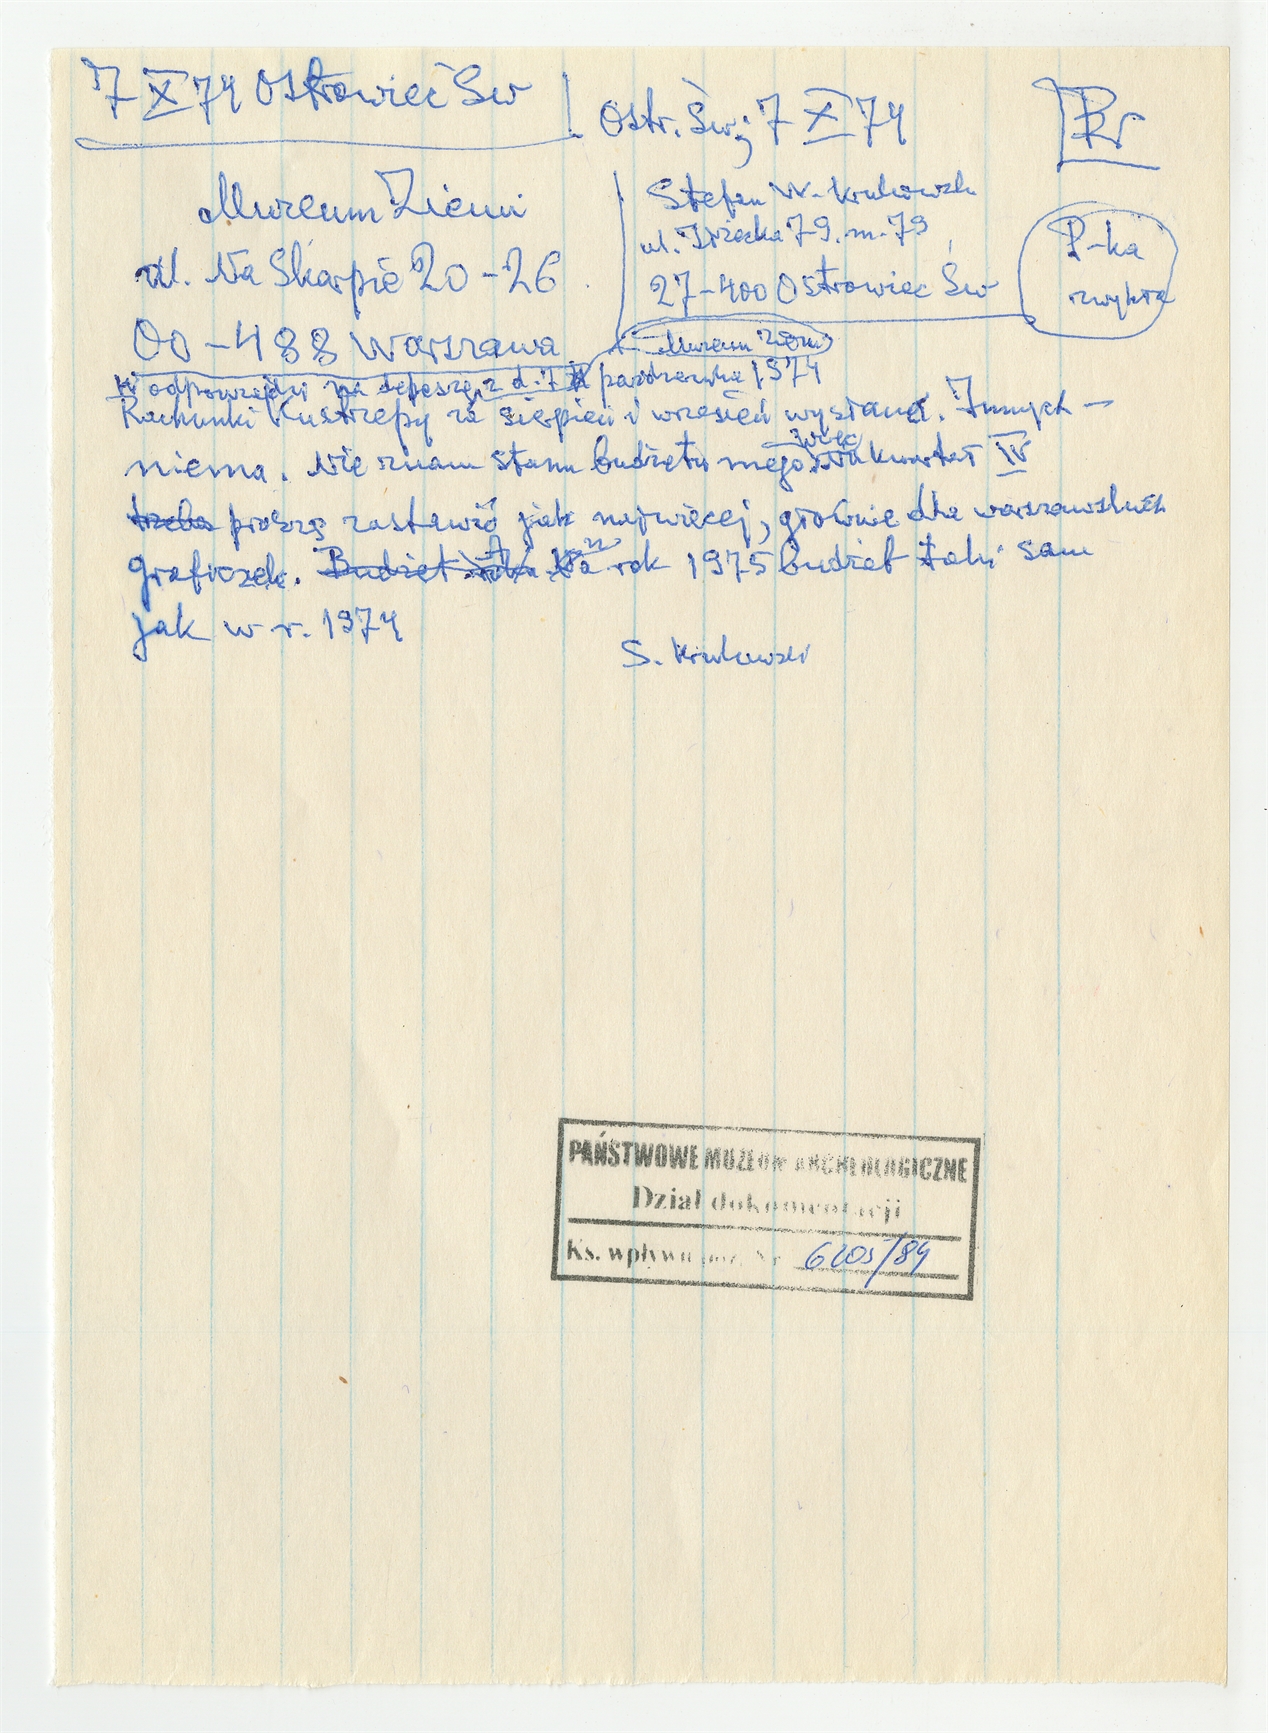 7 X 74 Ostrowiec Św
Ostr. Św; 7 X 74
Muzeum Ziemi
ul. Na Skarpie 20-26
00-488 Warszawa
Stefan W. Krukowski
ul. Iłżecka 79. m. 79
27-400 Ostrowiec Św
P-ka
zwykła
Muzeum Ziemi
W odpowiedzi na depeszę z d. 7 października 1974
Rachunki Kustrzepy za sierpień i wrzesień wysłane. Innych —
niema. Nie znam stanu budżetu mego na kwartał IV
więc
trzeba proszę zostawić jak najwięcej, głównie dla warszawskich
graficzek. Budżet na rok 1975 budżet taki sam
jak w r. 1974
S. Krukowski
PAŃSTWOWE MUZEUM ARCHEOLOGICZNE
Dział dokumentacji
Ks. wpływu Nr 6205/84